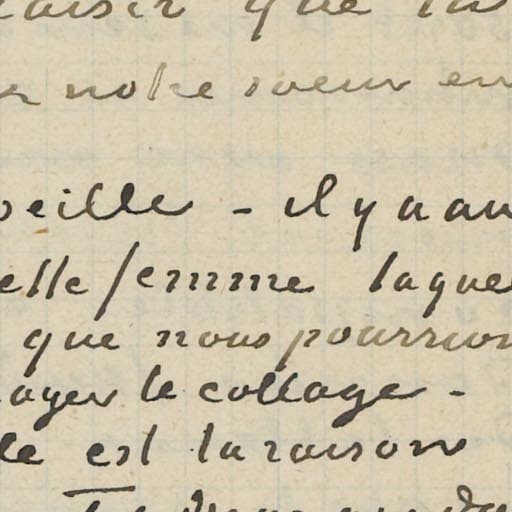 plaisir que tu
notre soeur en
veille - il y a au
elle femme laquel
que nous pourrion
ayer le collage -
le est la raison